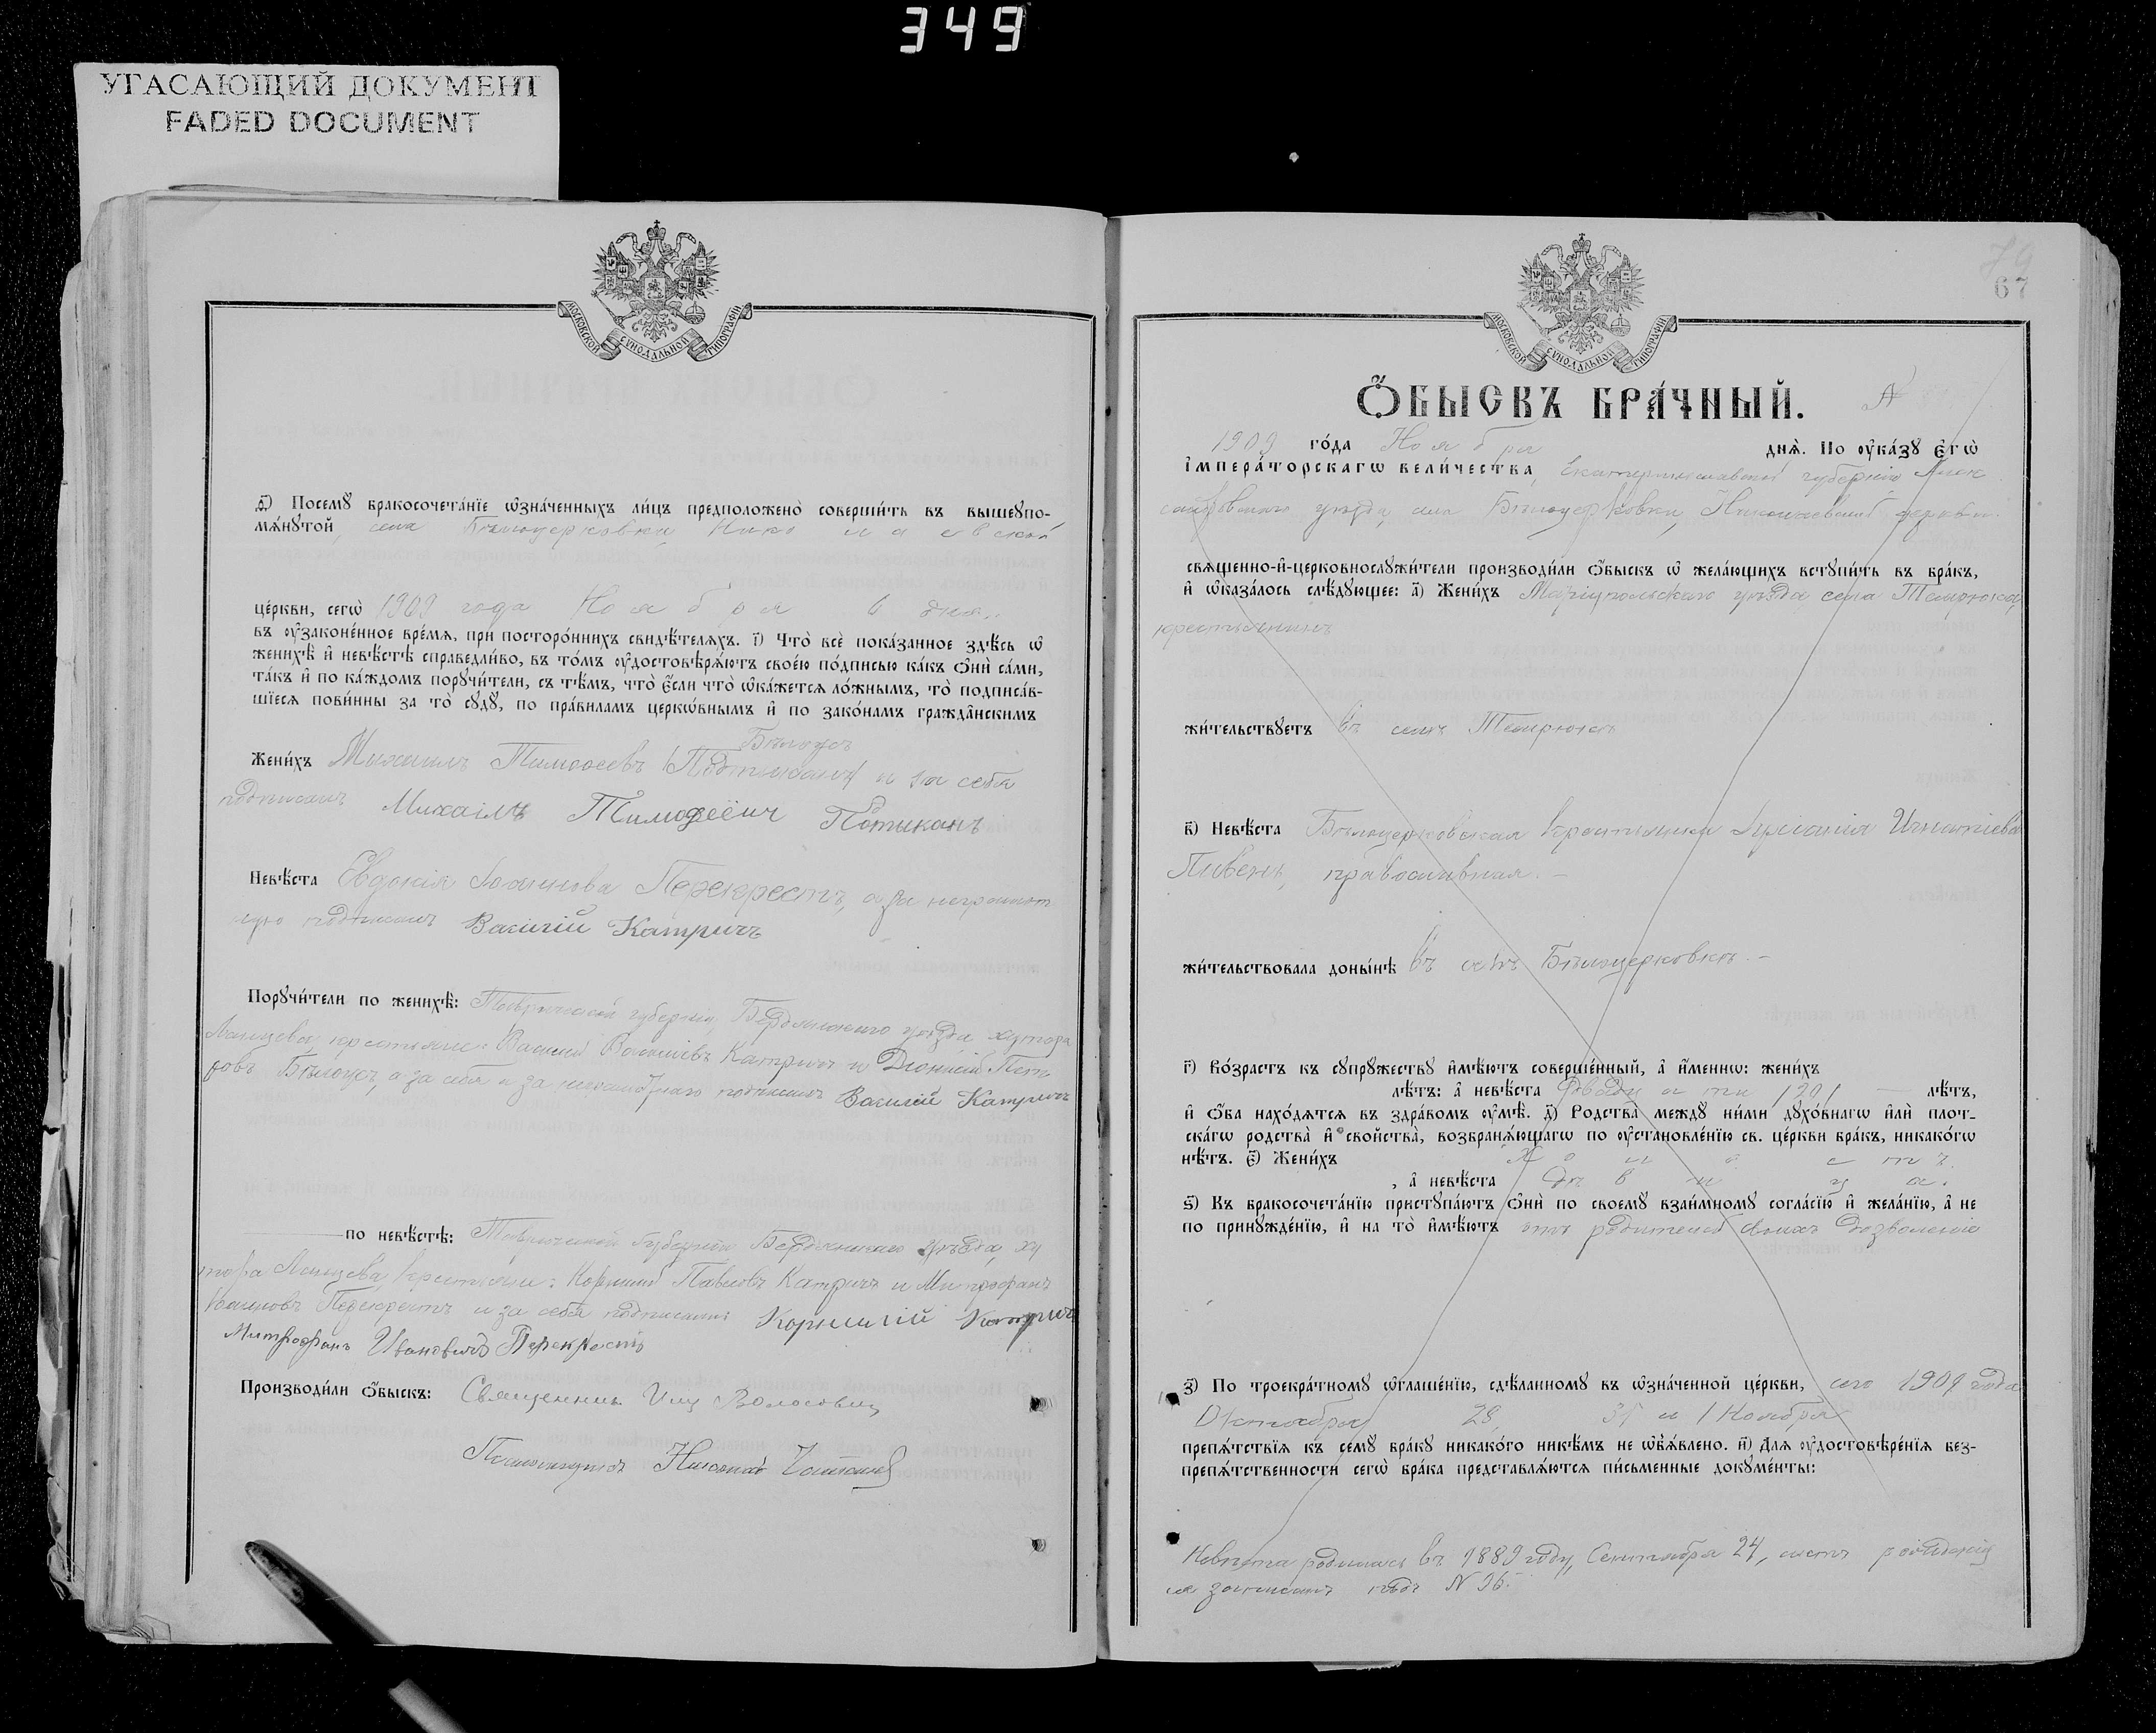 349
УГАСАЮЩИЙ ДОКУМЕНТ
FADED DOCUMENT
МОСКОВСКОЙ СѴНОДАЛЬНОЙ ТИПОГРАФІИ
ѳ҃) Посемꙋ бракосочета́нїе ѡ҆зна́ченныхъ ли́цъ предположено̀ соверши́ть въ вышеꙋпо-
мѧ́нꙋтой, села Бѣлоцерковки Николаевской
це́ркви, сегѡ̀ 1909 года Ноября 6 дня..
въ ᲂу҆законе́нное вре́мѧ, при посторо́ннихъ свидѣ́телѧхъ. і҃) Что̀ всѐ пока́занное здѣ́сь ѡ҆
женихѣ̀ и҆ невѣ́стѣ справедли́во, въ то́мъ ᲂу҆достовѣрѧ́ютъ свое́ю по́дписью ка́къ ѻ҆нѝ са́ми,
та́къ и҆ по ка́ждомъ порꙋчи́тели, съ тѣ́мъ, что̀ є҆́сли что̀ ѡ҆ка́жетсѧ ло́жнымъ, то̀ подписа́в-
шїесѧ пови́нны за то̀ сꙋдꙋ̀, по пра́виламъ церкѡ́внымъ и҆ по зако́намъ гражда̑нскимъ
Бѣлоусъ
Жени́хъ Михаилъ Тимоѳеевъ (Потиканъ) и за себя
подписалъ Михаілъ Тимофеёич Потиканъ
Невѣ́ста Евдокія Іоаннова Перекрестъ, а за неграмот
ную подписалъ Василій Катричъ
Порꙋчи́тели по женихѣ̀: Таврической губерніи, Бердянскаго уѣзда хутора
крестьяне: Василій Васильевъ Катричъ и Діонисій Пет
ровъ Бѣлоусъ, а за себя и за неграмотнаго подписалъ Василій Катричъ
по невѣ́стѣ: Таврической губерніи Бердянскаго уѣзда, ху
тора крестьяне: Корнилій Павловъ Катричъ и Митрофанъ
Іоанновъ Перекрестъ и за себя подписали Корнилій Катричъ
Митрофанъ Ивановичъ Перекрестъ
Производи́ли ѻ҆́быскъ: Священникъ Волосовичъ
Псаломщикъ Николай
79
67
МОСКОВСКОЙ СѴНОДАЛЬНОЙ ТИПОГРАФІИ
Ѻ҆́БЫСКЪ БРА́ЧНЫЙ. №
1909 го́да Ноября днѧ̀. По ᲂу҆ка́зꙋ є҆гѡ̀
і҆мпера́торскагѡ вели́чества, Екатеринославской губерніи Алек
сандровскаго уѣзда, села Бѣлоцерковки, Николаевской церкви
свѧщенно-и҆-церковнослꙋжи́тели производи́ли ѻ҆́быскъ ѡ҆ жела́ющихъ встꙋпи́ть въ бра́къ,
и҆ ѡ҆каза́лось слѣ́дꙋющее: а҃) Жени́хъ Маріупольскаго уѣзда села Темрюка,
крестьянинъ
жи́тельствꙋетъ въ селѣ Темрюкѣ
в҃) Невѣ́ста Бѣлоцерковская крестьянка Іуліанія Игнатіева
Пивень, православная. –
жи́тельствовала доны́нѣ въ селѣ Бѣлоцерковкѣ. –
г҃) Во́зрастъ къ сꙋпрꙋ́жествꙋ и҆мѣ́ютъ соверше́нный, а҆ и҆́меннѡ: жени́хъ
лѣ́тъ: а҆ невѣ́ста двадцати /20/ – лѣ́тъ,
и҆ ѻ҆́ба нахо́дѧтсѧ въ здра́вомъ ᲂу҆мѣ̀. д҃) Родства̀ междꙋ ни́ми дꙋхо́внагѡ и҆лѝ плот-
ска́гѡ родства̀ и҆ свойства̀, возбранѧ́ющагѡ по ᲂу҆становле́нїю св. це́ркви бра́къ, никако́гѡ
нѣ́тъ. є҃) Жени́хъ Холостъ
, а҆ невѣ́ста Дѣвица.
ѕ҃) Къ бракосочета́нїю пристꙋпа́ютъ ѻ҆нѝ по своемꙋ̀ взаи́мномꙋ согла́сїю и҆ жела́нїю, а҆ не
по принꙋжде́нїю, и҆ на то̀ и҆мѣ́ютъ отъ родителей своихъ дозволеніе
з҃) По троекра́тномꙋ ѡ҆глаше́нїю, сдѣ́ланномꙋ въ ѡ҆зна́ченной це́ркви, сего 1909 года
Октября 28, 31 и 1 Ноября
препѧ́тствїѧ къ семꙋ̀ бра́кꙋ никако́го никѣ́мъ не ѡ҆б̾ѧ́влено. и҃) Длѧ ᲂу҆достовѣре́нїѧ без-
препѧ́тственности сегѡ̀ бра́ка представлѧ́ютсѧ пи́сьменные докꙋме́нты:
Невѣста родилась въ 1889 году, Сентября 24, актъ рожденія
ея записанъ подъ № 96.